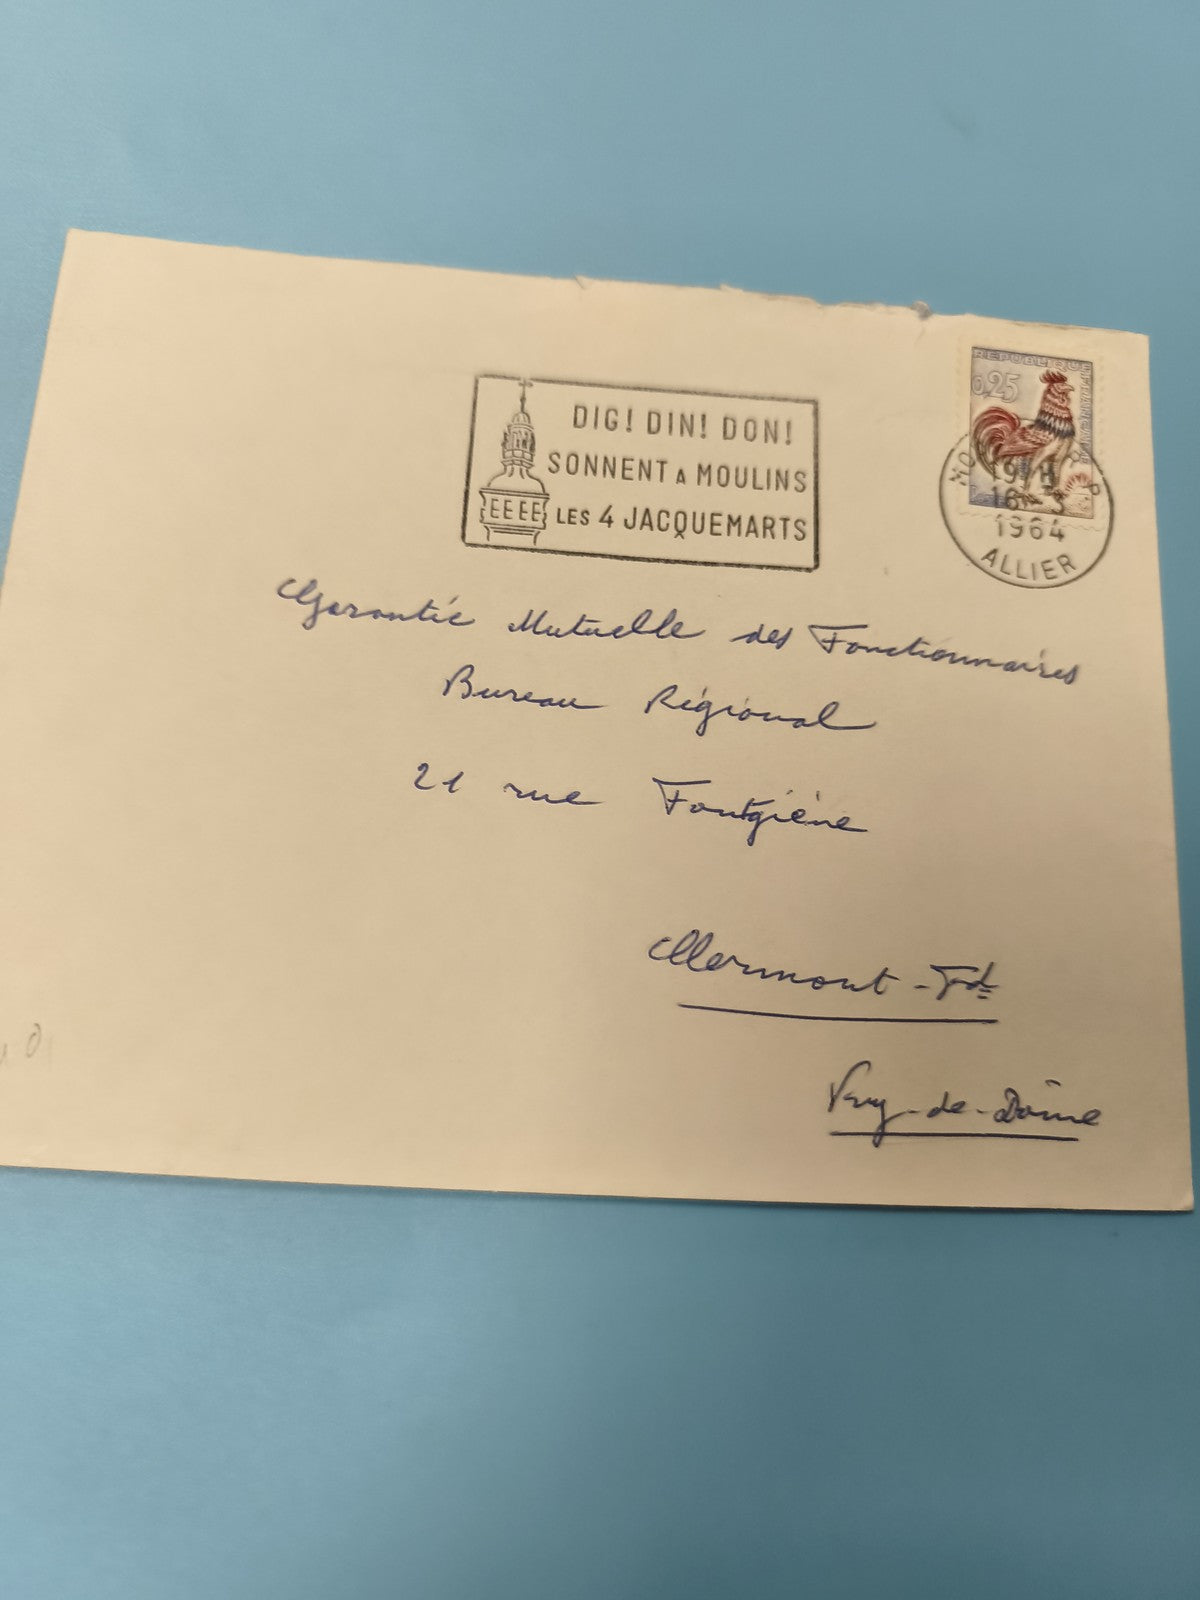 DIG! DIN! DON!
SONNENT A MOULINS
LES 4 JACQUEMARTS
REPUBLIQUE FRANÇAISE
0,25
Postes
19H
16-3
1964
ALLIER
Garantie Mutuelle des Fonctionnaires
Bureau Régional
21 rue Fontgiève
Clermont-Fd
Puy-de-Dôme